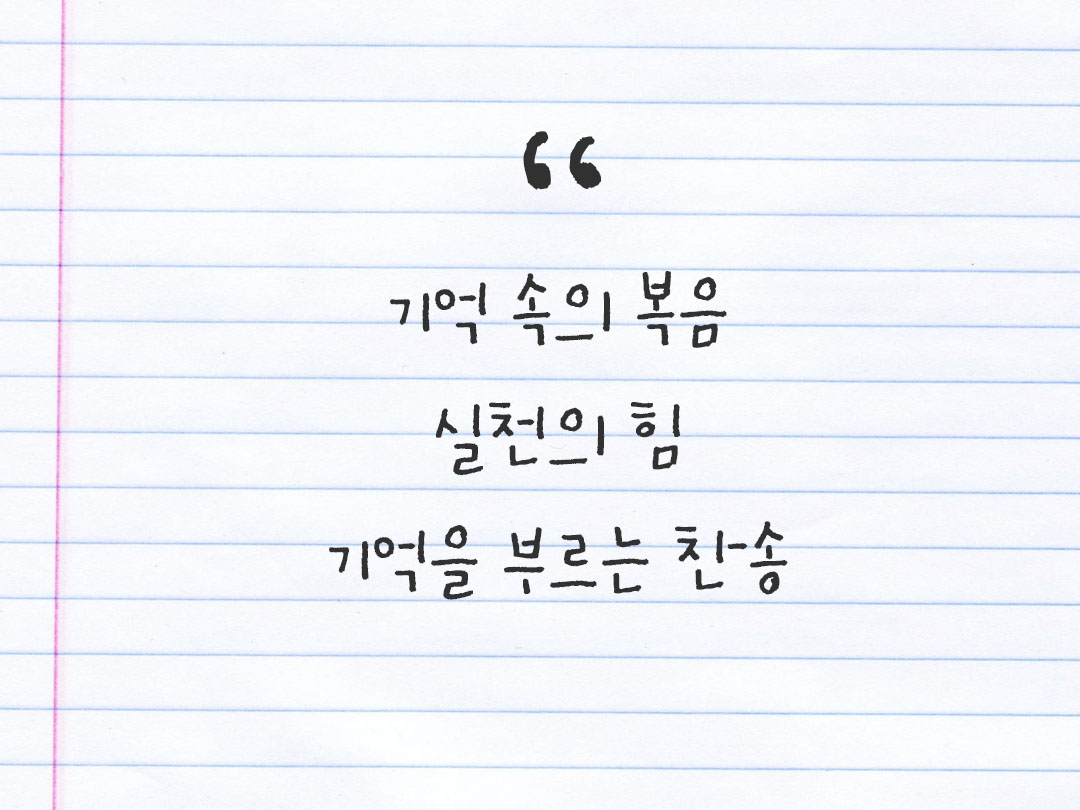 “
기억 속의 복음
실천의 힘
기억을 부르는 찬송